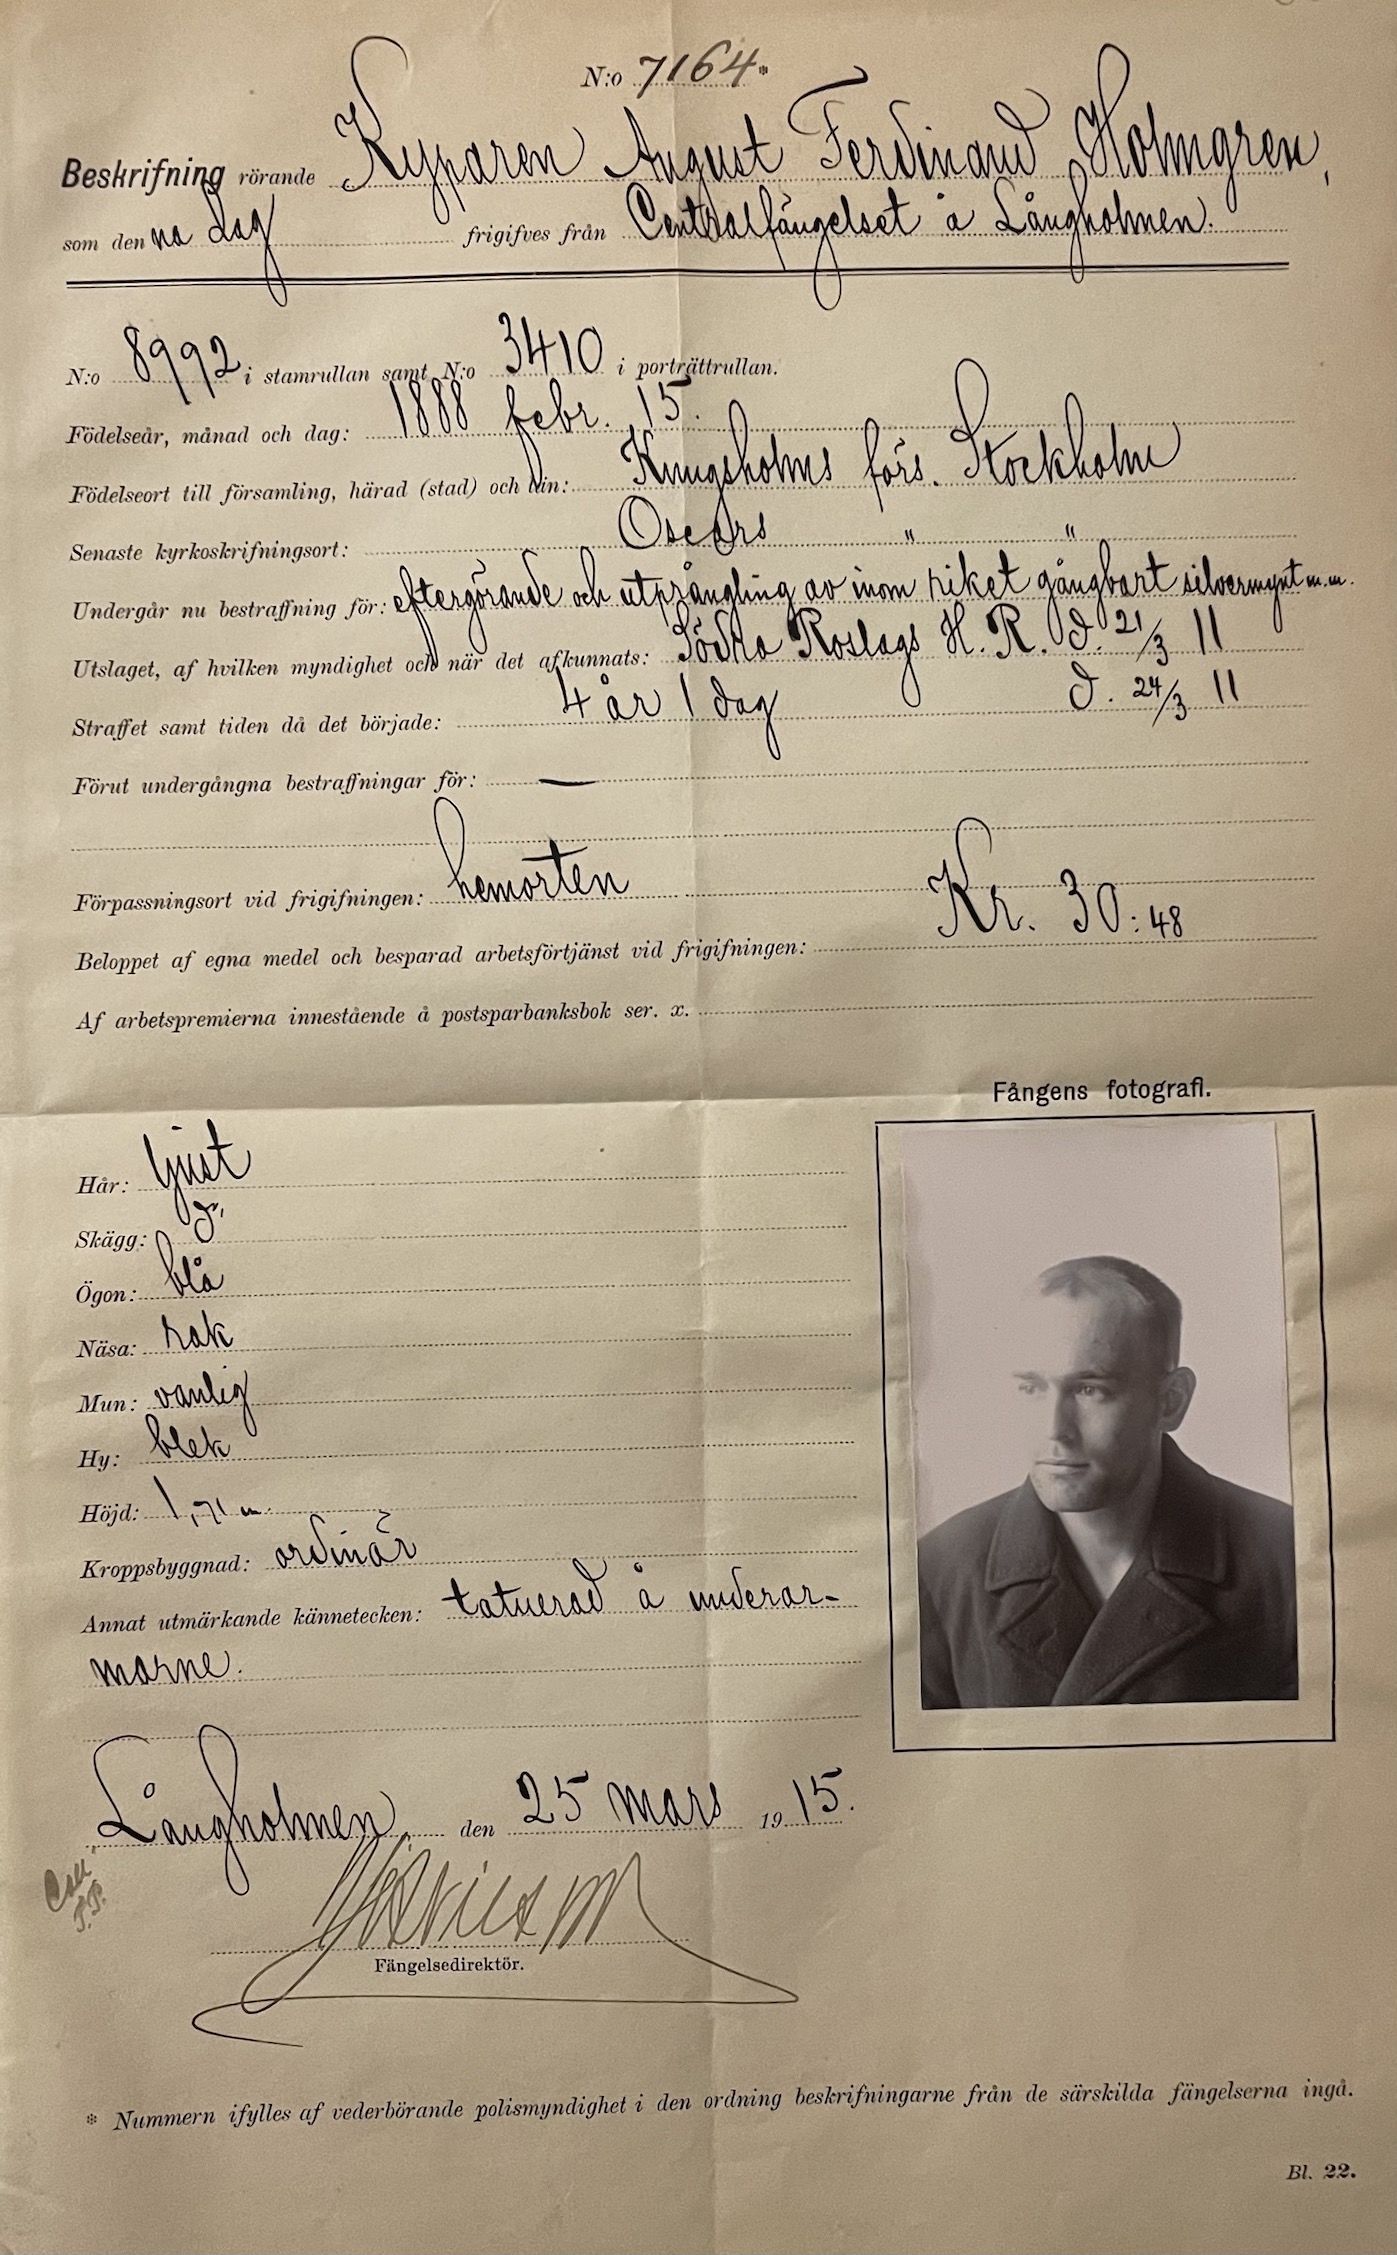 N:o 7164*
Beskrifning rörande Kyparen August Ferdinand Holmgren,
som den na dag frigifves från Centralfängelset å Långholmen.
N:o 8992 i stamrullan samt N:o 3410 i porträttrullan.
Födelseår, månad och dag: 1888 febr. 15.
Födelseort till församling, härad (stad) och län: Kungsholms förs. Stockholm
Senaste kyrkoskrifningsort: Oscars " "
Undergår nu bestraffning för: eftergörande och utprångling av inom riket gångbart silvermynt m.m.
Utslaget, af hvilken myndighet och när det afkunnats: Södra Roslags H. R. d. 21/3 11
Straffet samt tiden då det började: 4 år 1 dag d. 24/3 11
Förut undergångna bestraffningar för: —
Förpassningsort vid frigifningen: hemorten
Beloppet af egna medel och besparad arbetsförtjänst vid frigifningen: Kr. 30:48
Af arbetspremierna innestående å postsparbanksbok ser. x.
Fångens fotografi.
Hår: ljust
Skägg: d:o
Ögon: blå
Näsa: rak
Mun: vanlig
Hy: blek
Höjd: 1,71 m.
Kroppsbyggnad: ordinär
Annat utmärkande kännetecken: tatuerad å underar-
marne.
Långholmen den 25 mars 1915.
Fängelsedirektör.
* Nummern ifylles af vederbörande polismyndighet i den ordning beskrifningarne från de särskilda fängelserna ingå.
Bl. 22.